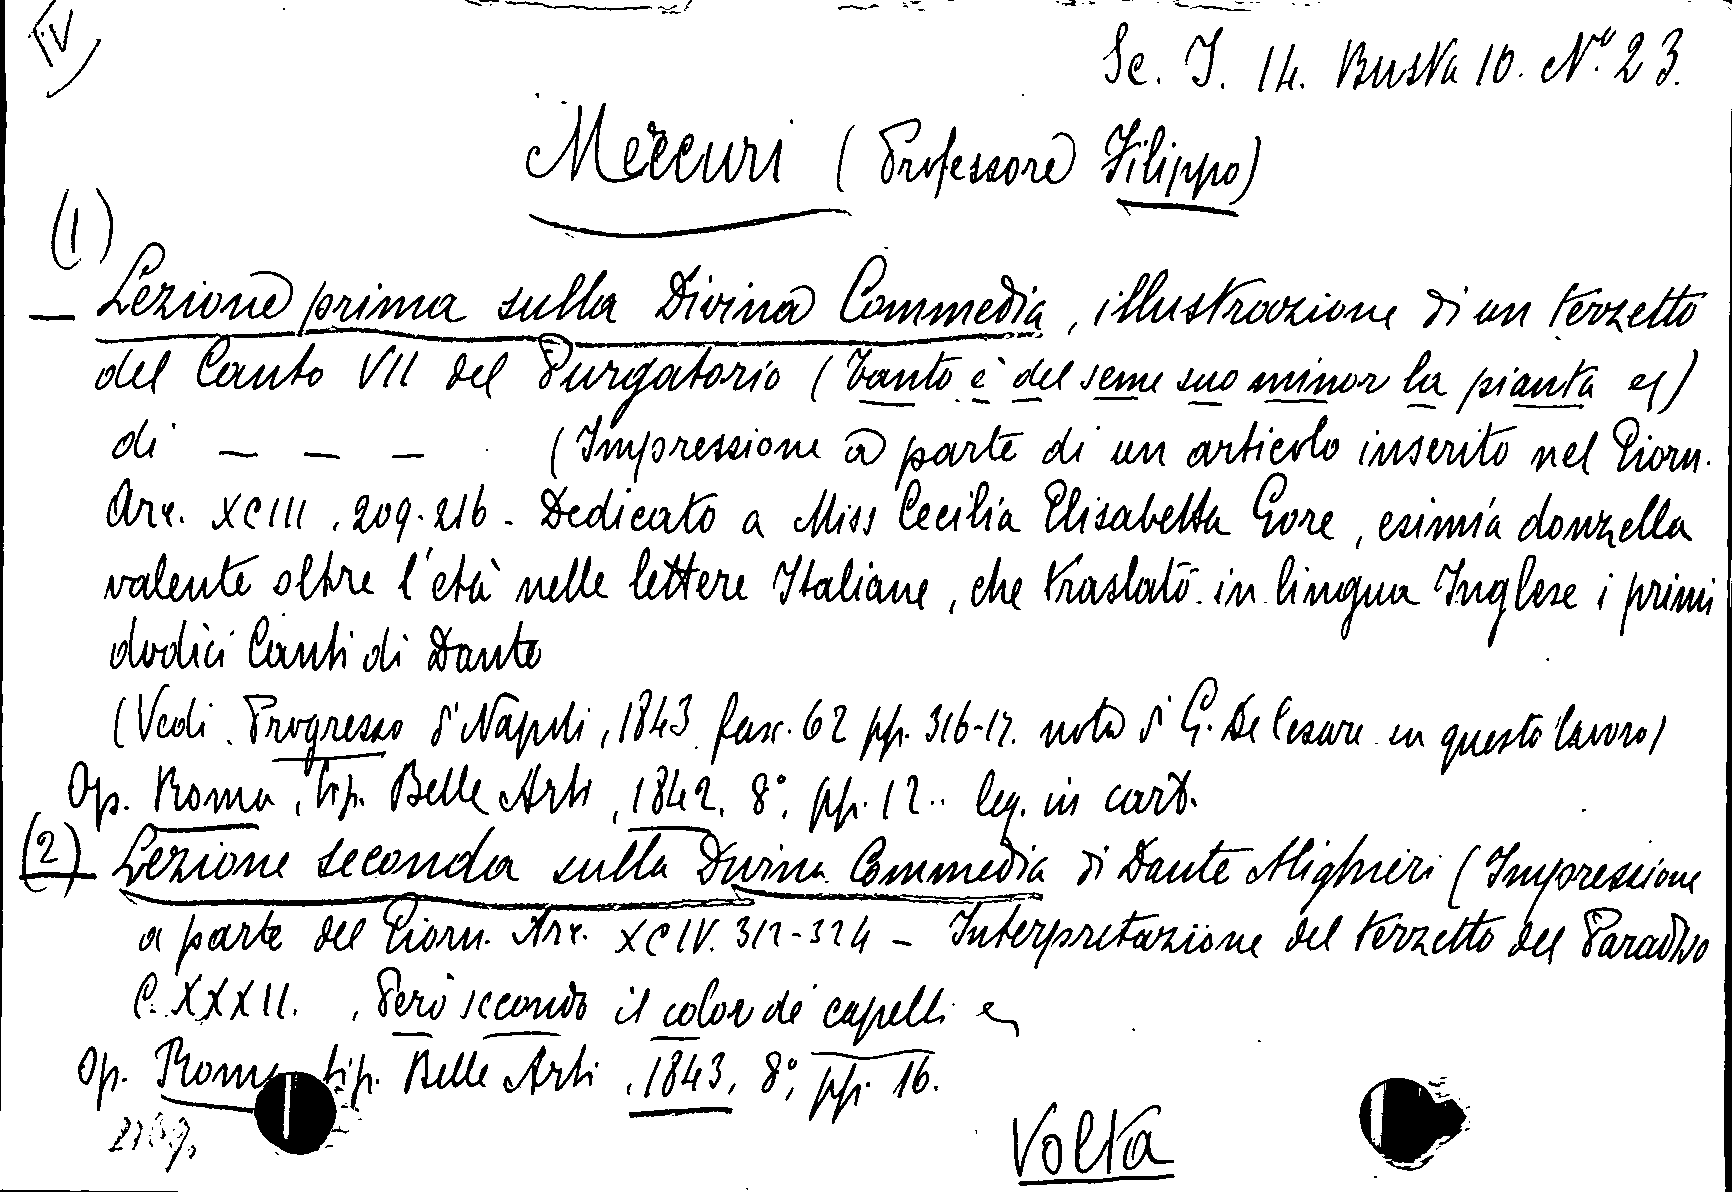 Sc. I. 14. Busta 10. Nº 23.
Mercuri (Professore Filippo)
(1)
— Lezione prima sulla Divina Commedia, illustrazione di un terzetto
del Canto VII del Purgatorio (Tanto è del seme suo minor la pianta
di — — — (Impressione a parte di un articolo inserito nel Giorn.
Arc. XCIII, 209-216 - Dedicato a Miss Cecilia Elisabetta Gore, esimia donzella
valente oltre l'età nelle lettere Italiane, che traslatò in lingua Inglese i primi
dodici Canti di Dante
(Vedi Progresso di Napoli, 1843 fasc. 62 pp. 316-17. nota di G. De Cesare su questo lavoro)
Op. Roma, tip. Belle Arti, 1842, 8º, pp. 12.. leg. in cart.
(2) Lezione seconda sulla Divina Commedia di Dante Alighieri (Impressione
a parte del Giorn. Arc. XCIV. 312-324 - Interpretazione del terzetto del Paradiso
C. XXXII. Però secondo il color de' capelli
Op. Roma tip. Belle Arti, 1843, 8º, pp. 16.
Volta